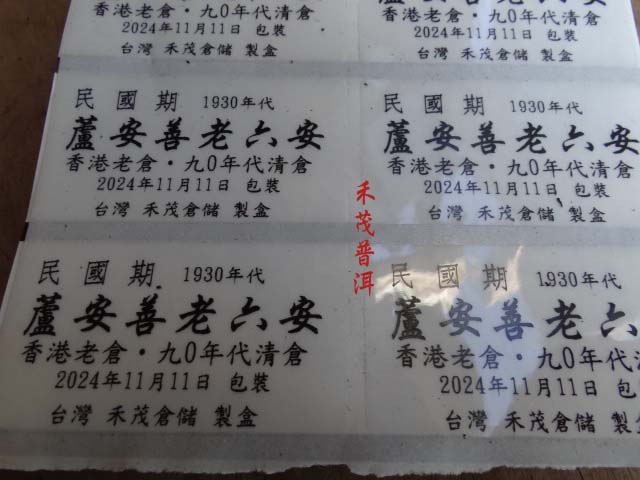 香港老倉·九0年代清倉
2024年11月11日 包裝
台灣 禾茂倉儲 製盒
香港老倉·九0年代清倉
2024年11月11日 包裝
台灣 禾茂倉儲 製盒
民國期 1930年代
蘆安善老六安
香港老倉·九0年代清倉
2024年11月11日 包裝
台灣 禾茂倉儲 製盒
民國期 1930年代
蘆安善老六安
香港老倉·九0年代清倉
2024年11月11日 包裝
台灣 禾茂倉儲 製盒
禾茂普洱
民國期 1930年代
蘆安善老六安
香港老倉·九0年代清倉
2024年11月11日 包裝
台灣 禾茂倉儲 製盒
民國期 1930年代
蘆安善老六
香港老倉·九0年代清
2024年11月11日 包
台灣 禾茂倉儲 製